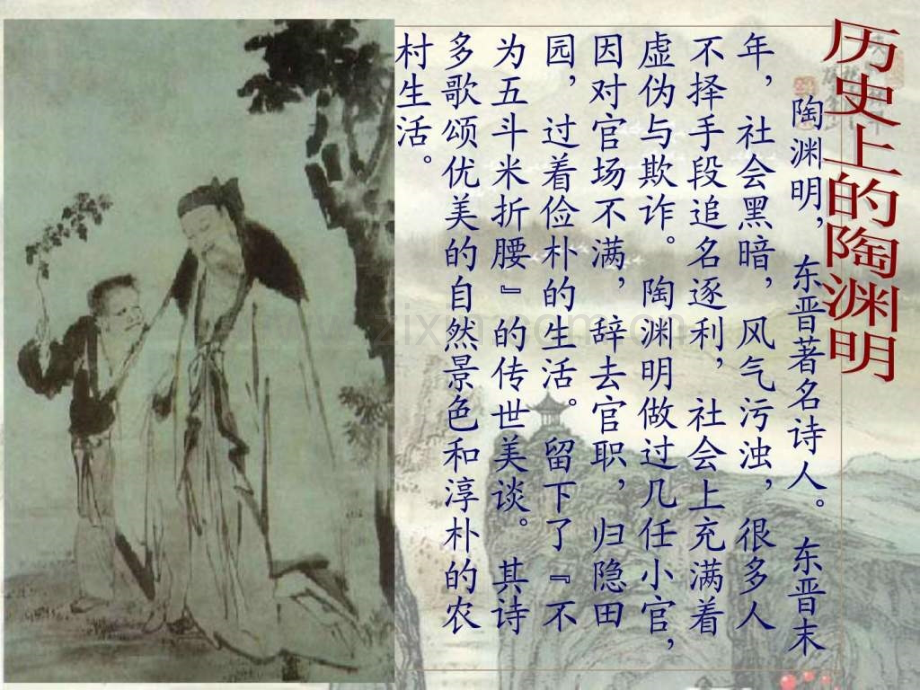 历史上的陶渊明
陶渊明，东晋著名诗人。东晋末
年，社会黑暗，风气污浊，很多人
不择手段追名逐利，社会上充满着
虚伪与欺诈。陶渊明做过几任小官，
因对官场不满，辞去官职，归隐田
园，过着俭朴的生活。留下了『不
为五斗米折腰』的传世美谈。其诗
多歌颂优美的自然景色和淳朴的农
村生活。